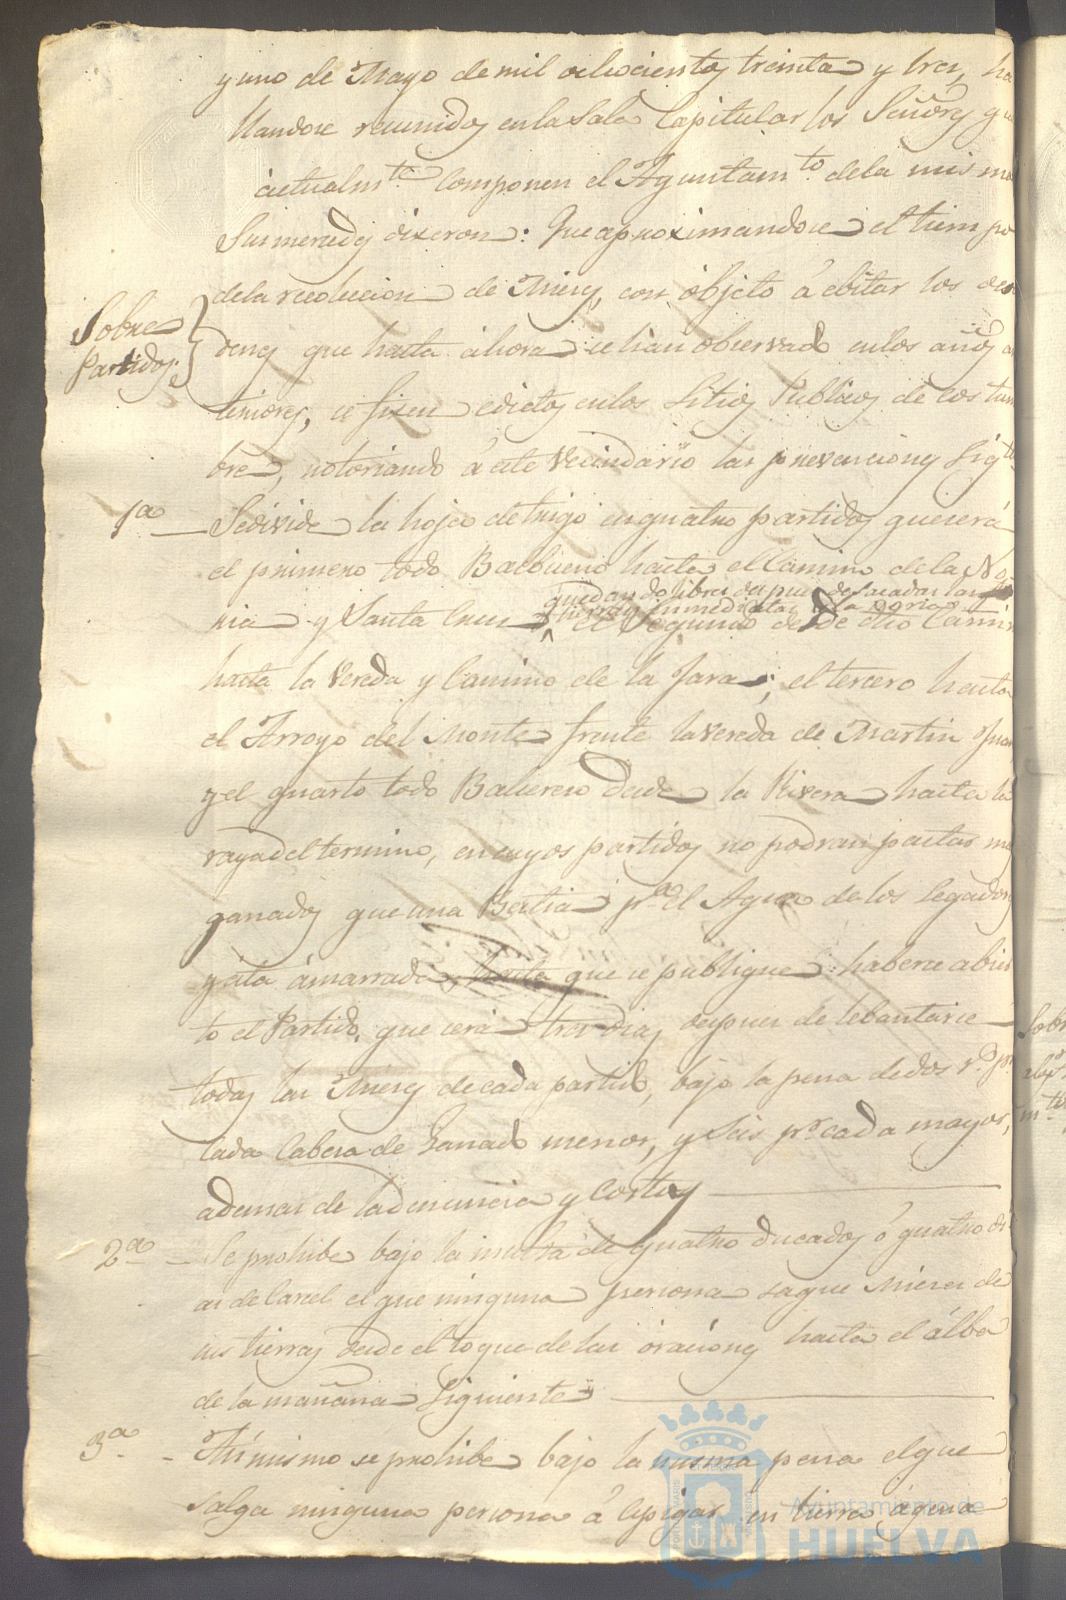 y uno de Mayo de mil ochocientos treinta y tres, ha
llandose reunidos en la Sala Capitular los Señores q
actualmte componen el Ayuntamto de la misma
Sus mercedes dixeron: Que aproximandose el tiempo
de la recoleccion de Mieses, con objeto á ebitar los desor
Sobre
Partidos.
denes que hasta ahora se han observado en los años an
teriores, se fixen edictos en los Sitios Publicos de costum
bre, notoriando á este Vecindario las prevenciones Sigtes
1ª Se divide la hoja de trigo en quatro partidos que será
el primero todo Balbueno hasta el Camino de la No
quedando libres despues de sacadas las
tierras inmediatas á la Noria
ria y Santa Cruz el Segundo desde dho Camin
hasta la Vereda y Camino de la Jara; el tercero hasta
el Arroyo del Monte frente la Vereda de Martin Juan
y el quarto todo desde la Rivera hasta la
raya del termino, en cuyos partidos no podran pastar mas
ganados que una Bestia pª el Agua de los Segadores
y esta amarrada, hasta que se publique haberse abier
to el Partido, que será tres dias despues de lebantarse
todas las Mieses de cada partido, bajo la pena de dos rs pr
cada Cabeza de Ganado menor, y Seis pr cada mayor,
ademas de la denuncia y Costas
2ª Se prohibe bajo la multa de quatro ducados ó quatro di
as de Carcel el que ninguna persona saque Mieses de
sus tierras desde el toque de las oraciones hasta el alba
de la mañana Siguiente
3ª Asimismo se prohibe bajo la misma pena el que
salga ninguna persona á Espigar en tierra agena
Sobr
mte
Ayuntamiento de
HUELVA